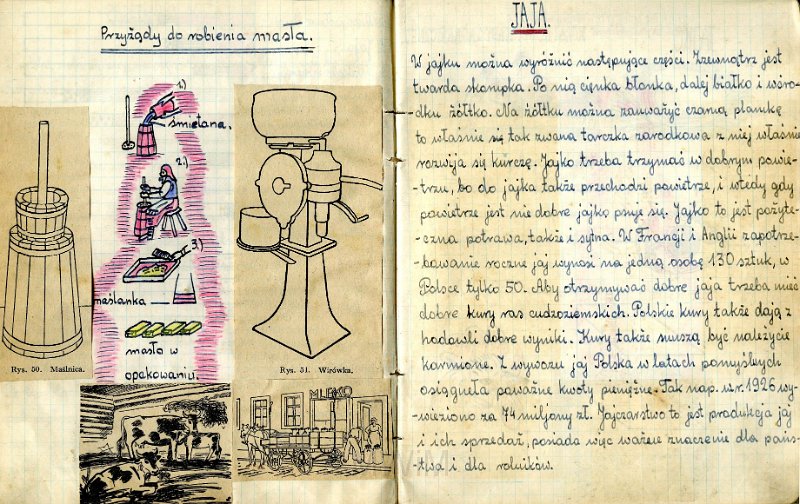 Przyżądy do robienia masła.
1)
śmietana.
2.)
3)
maślanka
masło w
opakowaniu.
Rys. 50. Maślnica.
Rys. 51. Wirówka.
MLEKO
JAJA.
W jajku można wyróżnić następujące części. Zzewnątrz jest
twarda skorupka. Po nią cienka błonka, dalej białko i wśro-
dku żółtko. Na żółtku można zauważyć czarną plamkę
to właśnie się tak zwana tarczka zarodkowa z niej właśnie
rozwija się kurczę. Jajko trzeba trzymać w dobrym powie-
-trzu, bo do jajka także przechodzi powietrze, i wtedy gdy
powietrze jest nie dobre jajko psuje się. Jajko to jest pożyte-
czna potrawa, także i sytna. W Francji i Anglii zapotrze-
-bowanie roczne jaj wynosi na jedną osobę 130 sztuk, w
Polsce tylko 50. Aby otrzymywać dobre jaja trzeba mieć
dobre kury ras cudzoziemskich. Polskie kury także dają z
hodowli dobre wyniki. Kury także muszą być należycie
karmione. Z wywozu jaj Polska w latach pomyślnych
osiągnęła poważne kwoty pieniężne. Tak nap. w r. 1926 wy-
-wieziono za 74 miljony zł. Jajczarstwo to jest produkcja jaj
i ich sprzedaż, posiada więc ważne znaczenie dla pańs-
-twa i dla rolników.